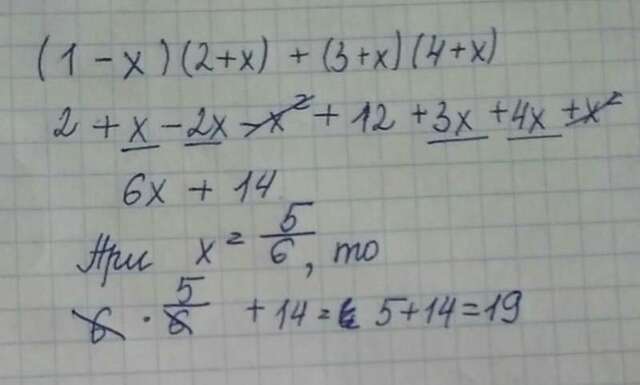 (1-x)(2+x) + (3+x)(4+x)
2 + x - 2x - x² + 12 + 3x + 4x + x²
6x + 14
При x = 5/6, то
6 · 5/6 + 14 = 5+14=19